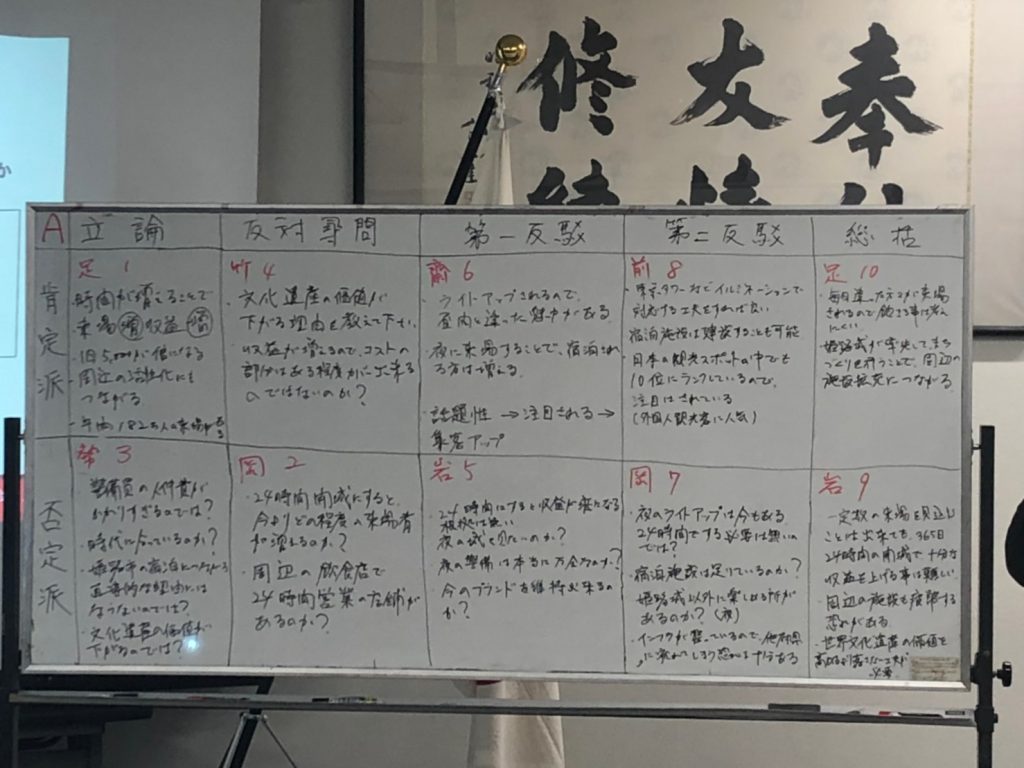 奉
友
修
か
A
立論
反対尋問
第一反駁
第二反駁
総括
肯定派
足 1
・時間が増えることで
来場増収益増
1日5,000人が倍になる
・周辺の活性化にも
つながる
・年間182万人の来場がある
竹 4
・文化遺産の価値が
下がる理由を教えて下さい
・収益が増えるので、コストの
部分はある程度カバー出来る
のではないのか?
齋 6
・ライトアップされるので、
昼間と違った魅力がある。
・夜に来場することで、宿泊され
る方は増える。
話題性 → 注目される →
集客アップ
前 8
・東京タワーなどイルミネーションで
対応する工夫をすれば良い
宿泊施設は建設することも可能
日本の観光スポットの中でも
10位にランクしているので、
注目はされている
(外国人観光客に人気)
足 10
・毎日違った方々が来場
されるので飽きる事は考え
にくい
・姫路城が率先してまち
づくりを行うことで、周辺の
施設拡充につながる。
否定派
3
警備員の人件費が
かかりすぎるのでは?
・時代に合っているのか?
・姫路市の宿泊につながる
直接的な理由には
ならないのでは?
・文化遺産の価値が
下がるのでは?
岡 2
・24時間開城にすると、
今よりどの程度の来場者
が増えるのか?
・周辺の飲食店で
24時間営業の店舗が
あるのか?
岩 5
・24時間にすると収益が倍になる
根拠は無い
夜の城を見たいのか?
・夜の警備は本当に万全なのか?
・今のブランドを維持出来るの
か?
岡 7
・夜のライトアップは今もある。
24時間でする必要は無いの
では?
・宿泊施設は足りているのか?
・姫路城以外に楽しめる所が
あるのか?(夜)
・インフラが整っているので、他府県
に流れてしまう恐れは十分ある
岩 9
一定数の来場を見込む
ことは出来ても、365日
24時間の開城で十分な
収益を上げる事は難しい
・周辺の施設も疲弊する
恐れがある。
世界文化遺産の価値を